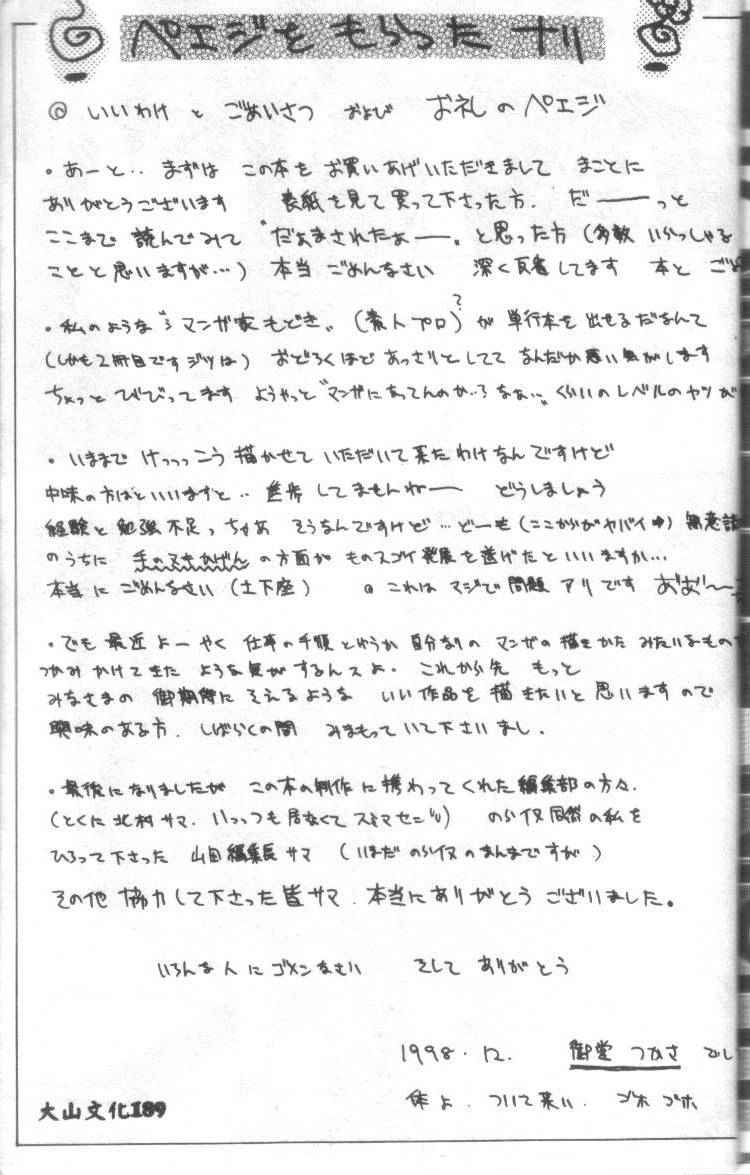 ペエジをもらったナリ
@ いいわけ と ごあいさつ および お礼のペエジ
・あーと‥ まずは この本を お買いあげいただきまして まことに
ありがとうございます 表紙を見て買って下さった方、だーーっと
ここまで読んでみて "だぁまされたぁー。"と思った方(多数 いらっしゃる
ことと思いますが…) 本当 ごめんなさい 深く反省してます 本と ごめ
・私のような "マンガ家もどき。(素人プロ)?が 単行本を出せるだなんて
(しかも2冊目です ジツは) おどろくほど あっさりとしてて なんだか悪い気がします
ちょっと びびってます ようやっと "マンガになってんのか‥?なぁ…" くらいのレベルのヤツが
・いままで けっっっこう 描かせて いただいて来たわけなんですけど
中味の方はといいますと‥ 進歩 してませんねー どうしましょう
経験と 勉強不足っちゃあ そうなんですけど…どーも(ここからがヤバイ) 無意識
のうちに 手のヌキかげん の方面が ものスゴイ発展を遂げたといいますか…
本当に ごめんなさい(土下座) @ これは マジで 問題 アリです おおお〜
・でも 最近 よーやく 仕事の手順 とゆうか 自分なりの マンガの描きかた みたいなもの
つかみかけてきた ような気がするんスよ・ これから先 もっと
みなさまの 御期待に そえるような いい作品を 描きたいと 思いますので
興味のある方、しばらくの間 みまもって いて下さいまし、
・最後になりましたが この本の制作に携わってくれた 編集部の方々、
(とくに 北村サマ、いっっつも居なくて スミマセン) のらイヌ同然の私を
ひろって下さった 山田編集長サマ (いまだ のらイヌのまんまですが)
その他 協力して下さった皆サマ、本当にありがとう ございました。
いろんな人に ゴメンなさい そして ありがとう
1998.12. 御堂 つかさ でし
体よ、ついて来い、 ゴホ ゴホ
大山文化189